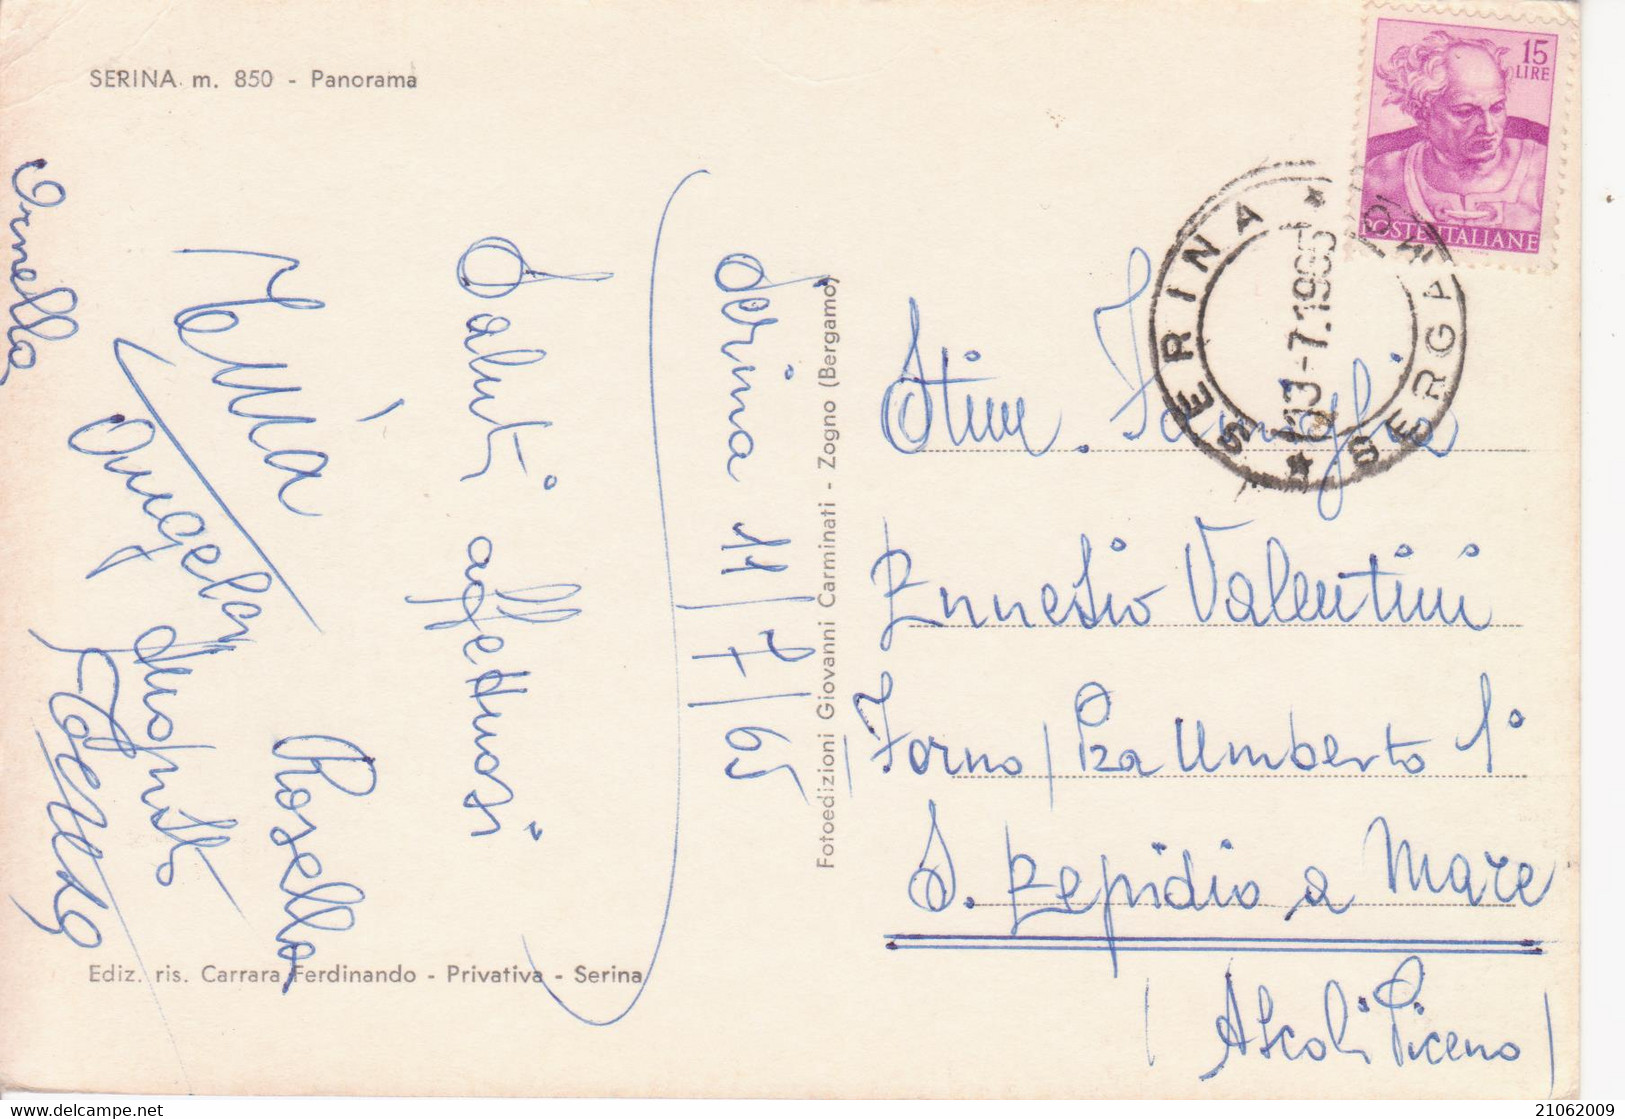 SERINA m. 850 - Panorama
15
LIRE
POSTE ITALIANE
SERINA * BERGAMO *
13-7.1965
Serina 11/7/65
Saluti affettuosi
Rosella
Angela
Ornella
Fotoedizioni Giovanni Carminati - Zogno (Bergamo)
Stim. Famiglia
Ennesio Valentini
Forno / Pza Umberto 1°
S. Elpidio a Mare
(Ascoli Piceno)
Ediz. ris. Carrara Ferdinando - Privativa - Serina
21062009